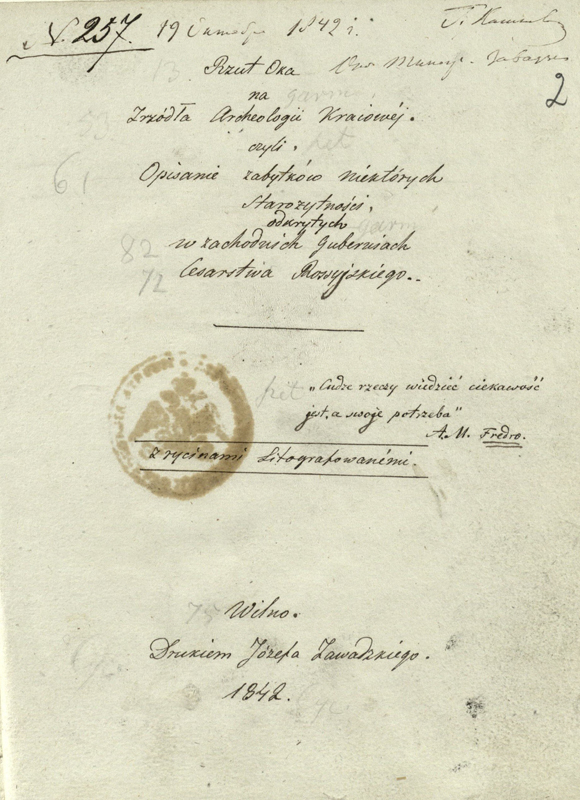 N. 257. 19 1842 г.
2
Rzut Oka
na
Zrzódła Archeologii Kraiowéj.
czyli.
Opisanie zabytków niektórych
Starożytności,
odkrytych
w zachodnich Guberniach
Cesarstwa Rossyjskiego..
61
82
72
„Cudze rzeczy wiedzieć ciekawość
jest, a swoje potrzeba"
A. M. Fredro.
z rycinami Litografowanémi.
Wilno.
Drukiem Józefa Zawadzkiego.
1842.